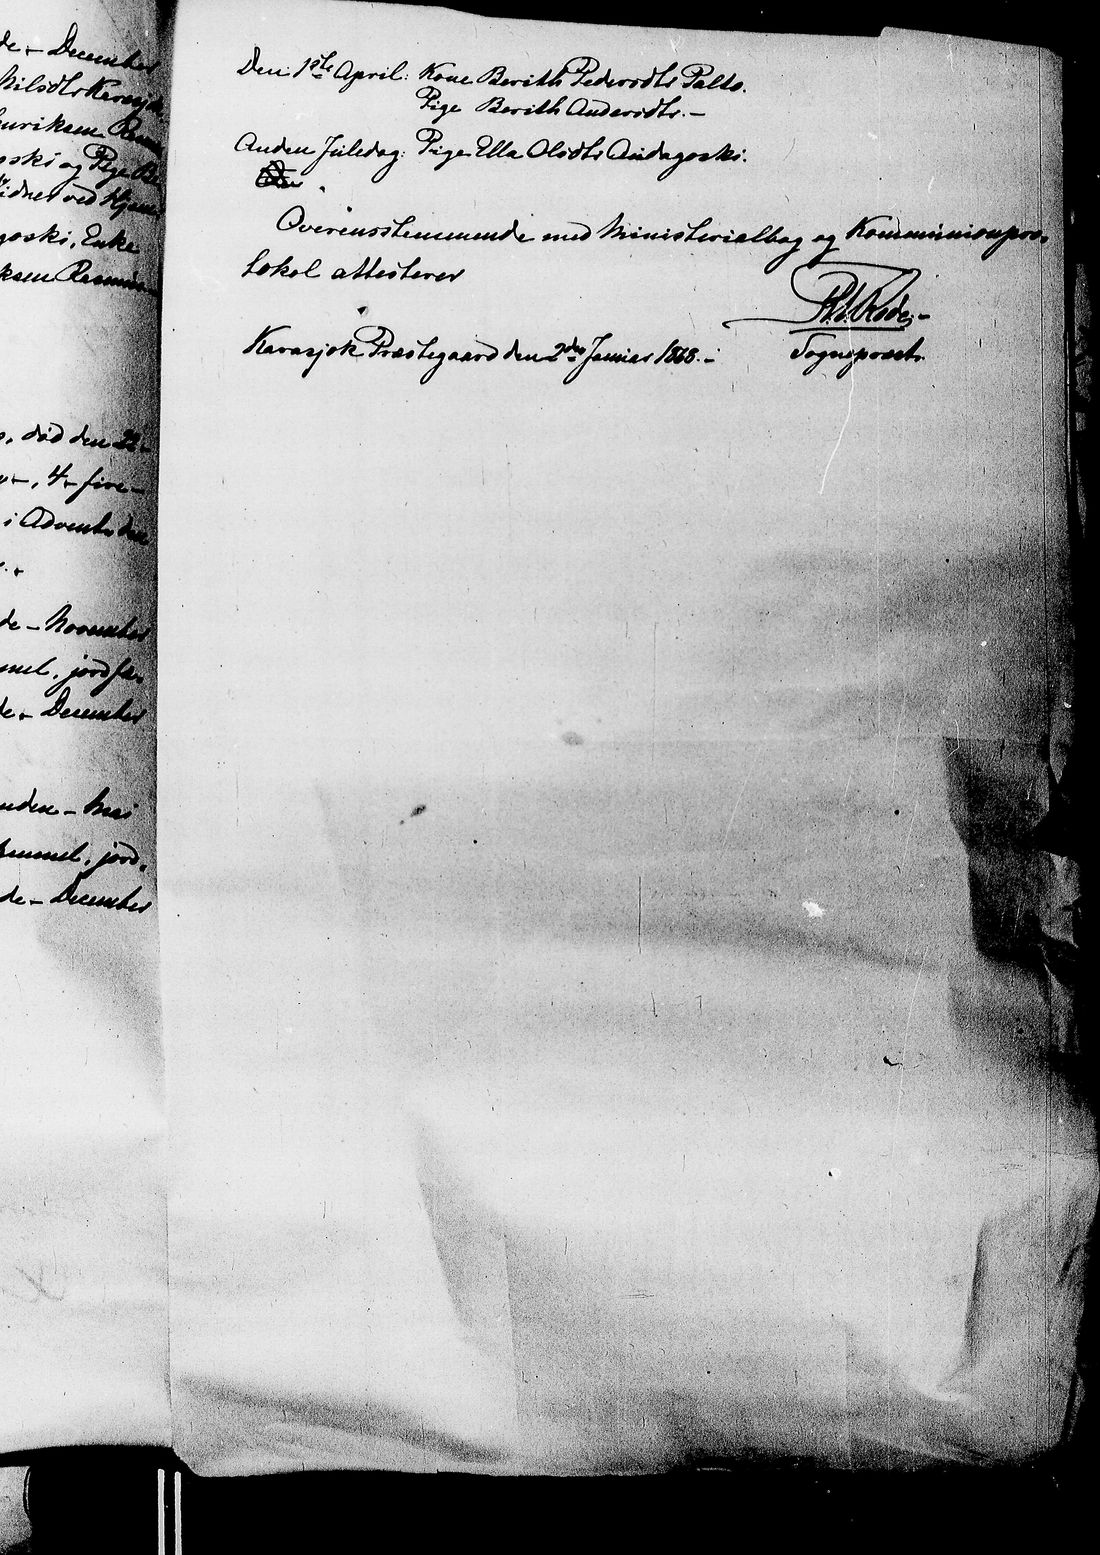 de - December
Nilsdtr Karasjok
Henriksen
oski og Pige Be
Vidner ved Hjem
goski, Enke
ksen Rasmus
, død den 22-
4 - fire -
i Advents den
de - November
mel, jordfæ-
de - December
nden - Mai
Hemmel, jord-
de - December
Den 1ste April: Kone Berith Pedersdtr Palto.
Pige Berith Andersdtr. -
Anden Juledag: Pige Ella Olsdtr Andagoski.
Overensstemmende med Ministerialbog og Kommunionpro-
tokol attesterer
Karasjok Præstegaard den 2den Januar 1868. -
Sognepræst.